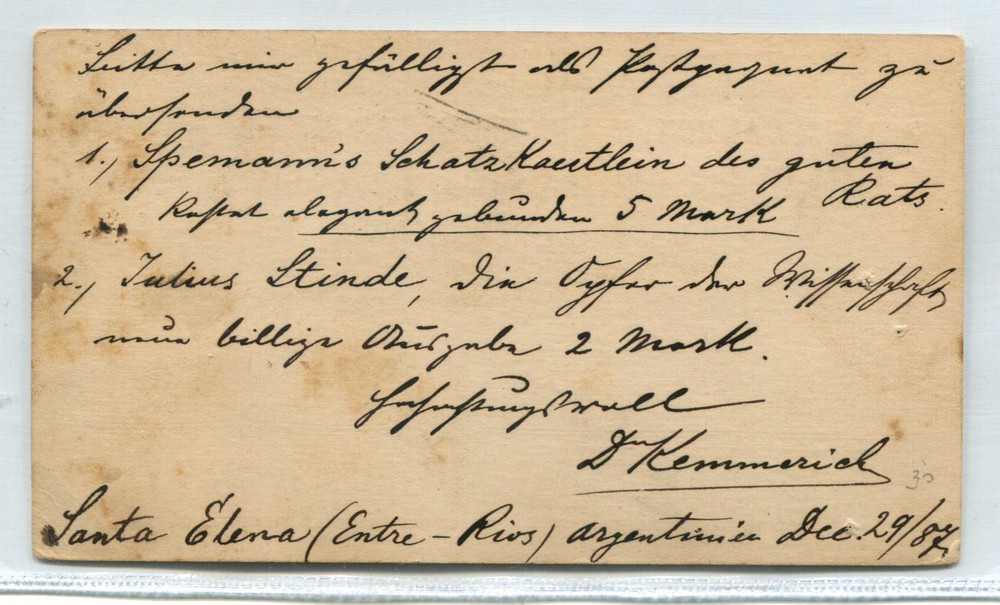 Bitte mir gefälligst als Postpaquet zu
übersenden
1., Spemann's Schatz Kaestlein des guten
Rats.
Kostet elegant gebunden 5 Mark
2., Julius Stinde, die Opfer der Wissenschaft
neue billige Ausgabe 2 Mark.
Hochachtungsvoll
Dr Kemmerich
30
Santa Elena (Entre-Rios) Argentinien Dec. 29/87.